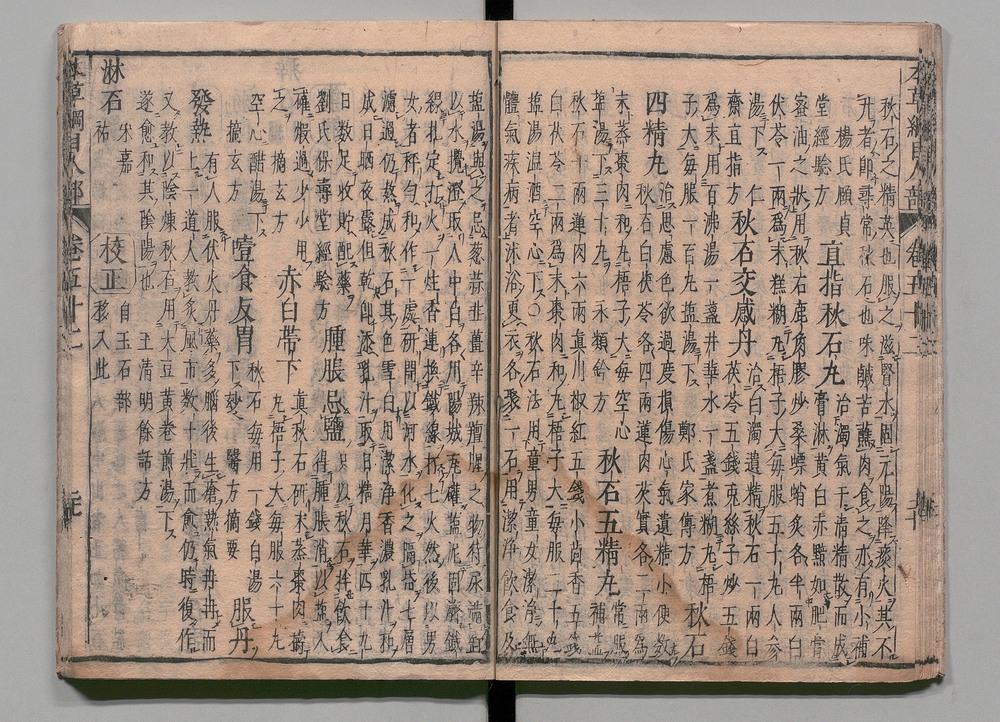 秋石之精英也服之滋腎水固元陽降痰火其不
元者卽尋常秋石也味鹹苦蘸肉食之亦有小補
楊氏頤貞堂經驗方 直指秋石丸 治濁氣干淸精散而成
膏淋黃白赤黯如肥膏
蜜油之狀用秋石鹿角膠炒桑螵蛸炙各半兩白
茯苓一兩爲末糕糊丸梧子大每服五十丸人參
湯下 仁齋直指方 秋石交感丹 治白濁遺精秋石一兩白
茯苓五錢兎絲子炒五錢
爲末用百沸湯一盞井華水一盞煮糊丸梧
子大每服一百丸鹽湯下 鄭氏家傳方 秋石
四精丸 治思慮色欲過度損傷心氣遺精小便數
秋石白茯苓各四兩蓮肉芡實各二兩爲
末蒸棗肉和丸梧子大每空心
鹽湯下三十丸 永類鈐方 秋石五精丸 常服補益
秋石十兩蓮肉六兩眞川椒紅五錢小茴香五錢
白茯苓二兩爲末棗肉和丸梧子大每服三十丸
鹽湯溫酒空心下○秋石法用童男童女潔淨無
體氣疾病者沐浴更衣各聚一石用潔淨飮食及
鹽湯與之忌葱蒜韭薑辛辣羶腥之物待尿滿缸
以水攪澄取人中白各用陽城瓦罐鹽泥固濟鐵
線扎定打火一炷香連換鐵線打七火然後以男
女者秤勻和作一處硏開以河水化之隔紙七層
濾過仍熬成秋石其色雪白用潔淨香濃乳汁和
成日晒夜露但乾卽添乳汁取日精月華四十九
日數足收貯配藥
劉氏保壽堂經驗方 腫脹忌鹽 只以秋石拌飮食
待腫脹消以鹽入
罐煅過少少用
之 摘玄方 赤白帶下 眞秋石硏末蒸棗肉擣
丸梧子大每服六十丸
空心醋湯下
摘玄方 噎食反胃 秋石每用一錢白湯
下妙 醫方摘要 服丹
發熱 有人服伏火丹藥多腦後生瘡熱氣冉冉而
上一道人敎灸風市數十壯而愈仍時復作
又敎以陰煉秋石用大豆黃卷煎湯下
遂愈和其陰陽也 王淸明餘話方
淋石 宋嘉祐 校正 自玉石部移入此
本草綱目人部 卷五十二